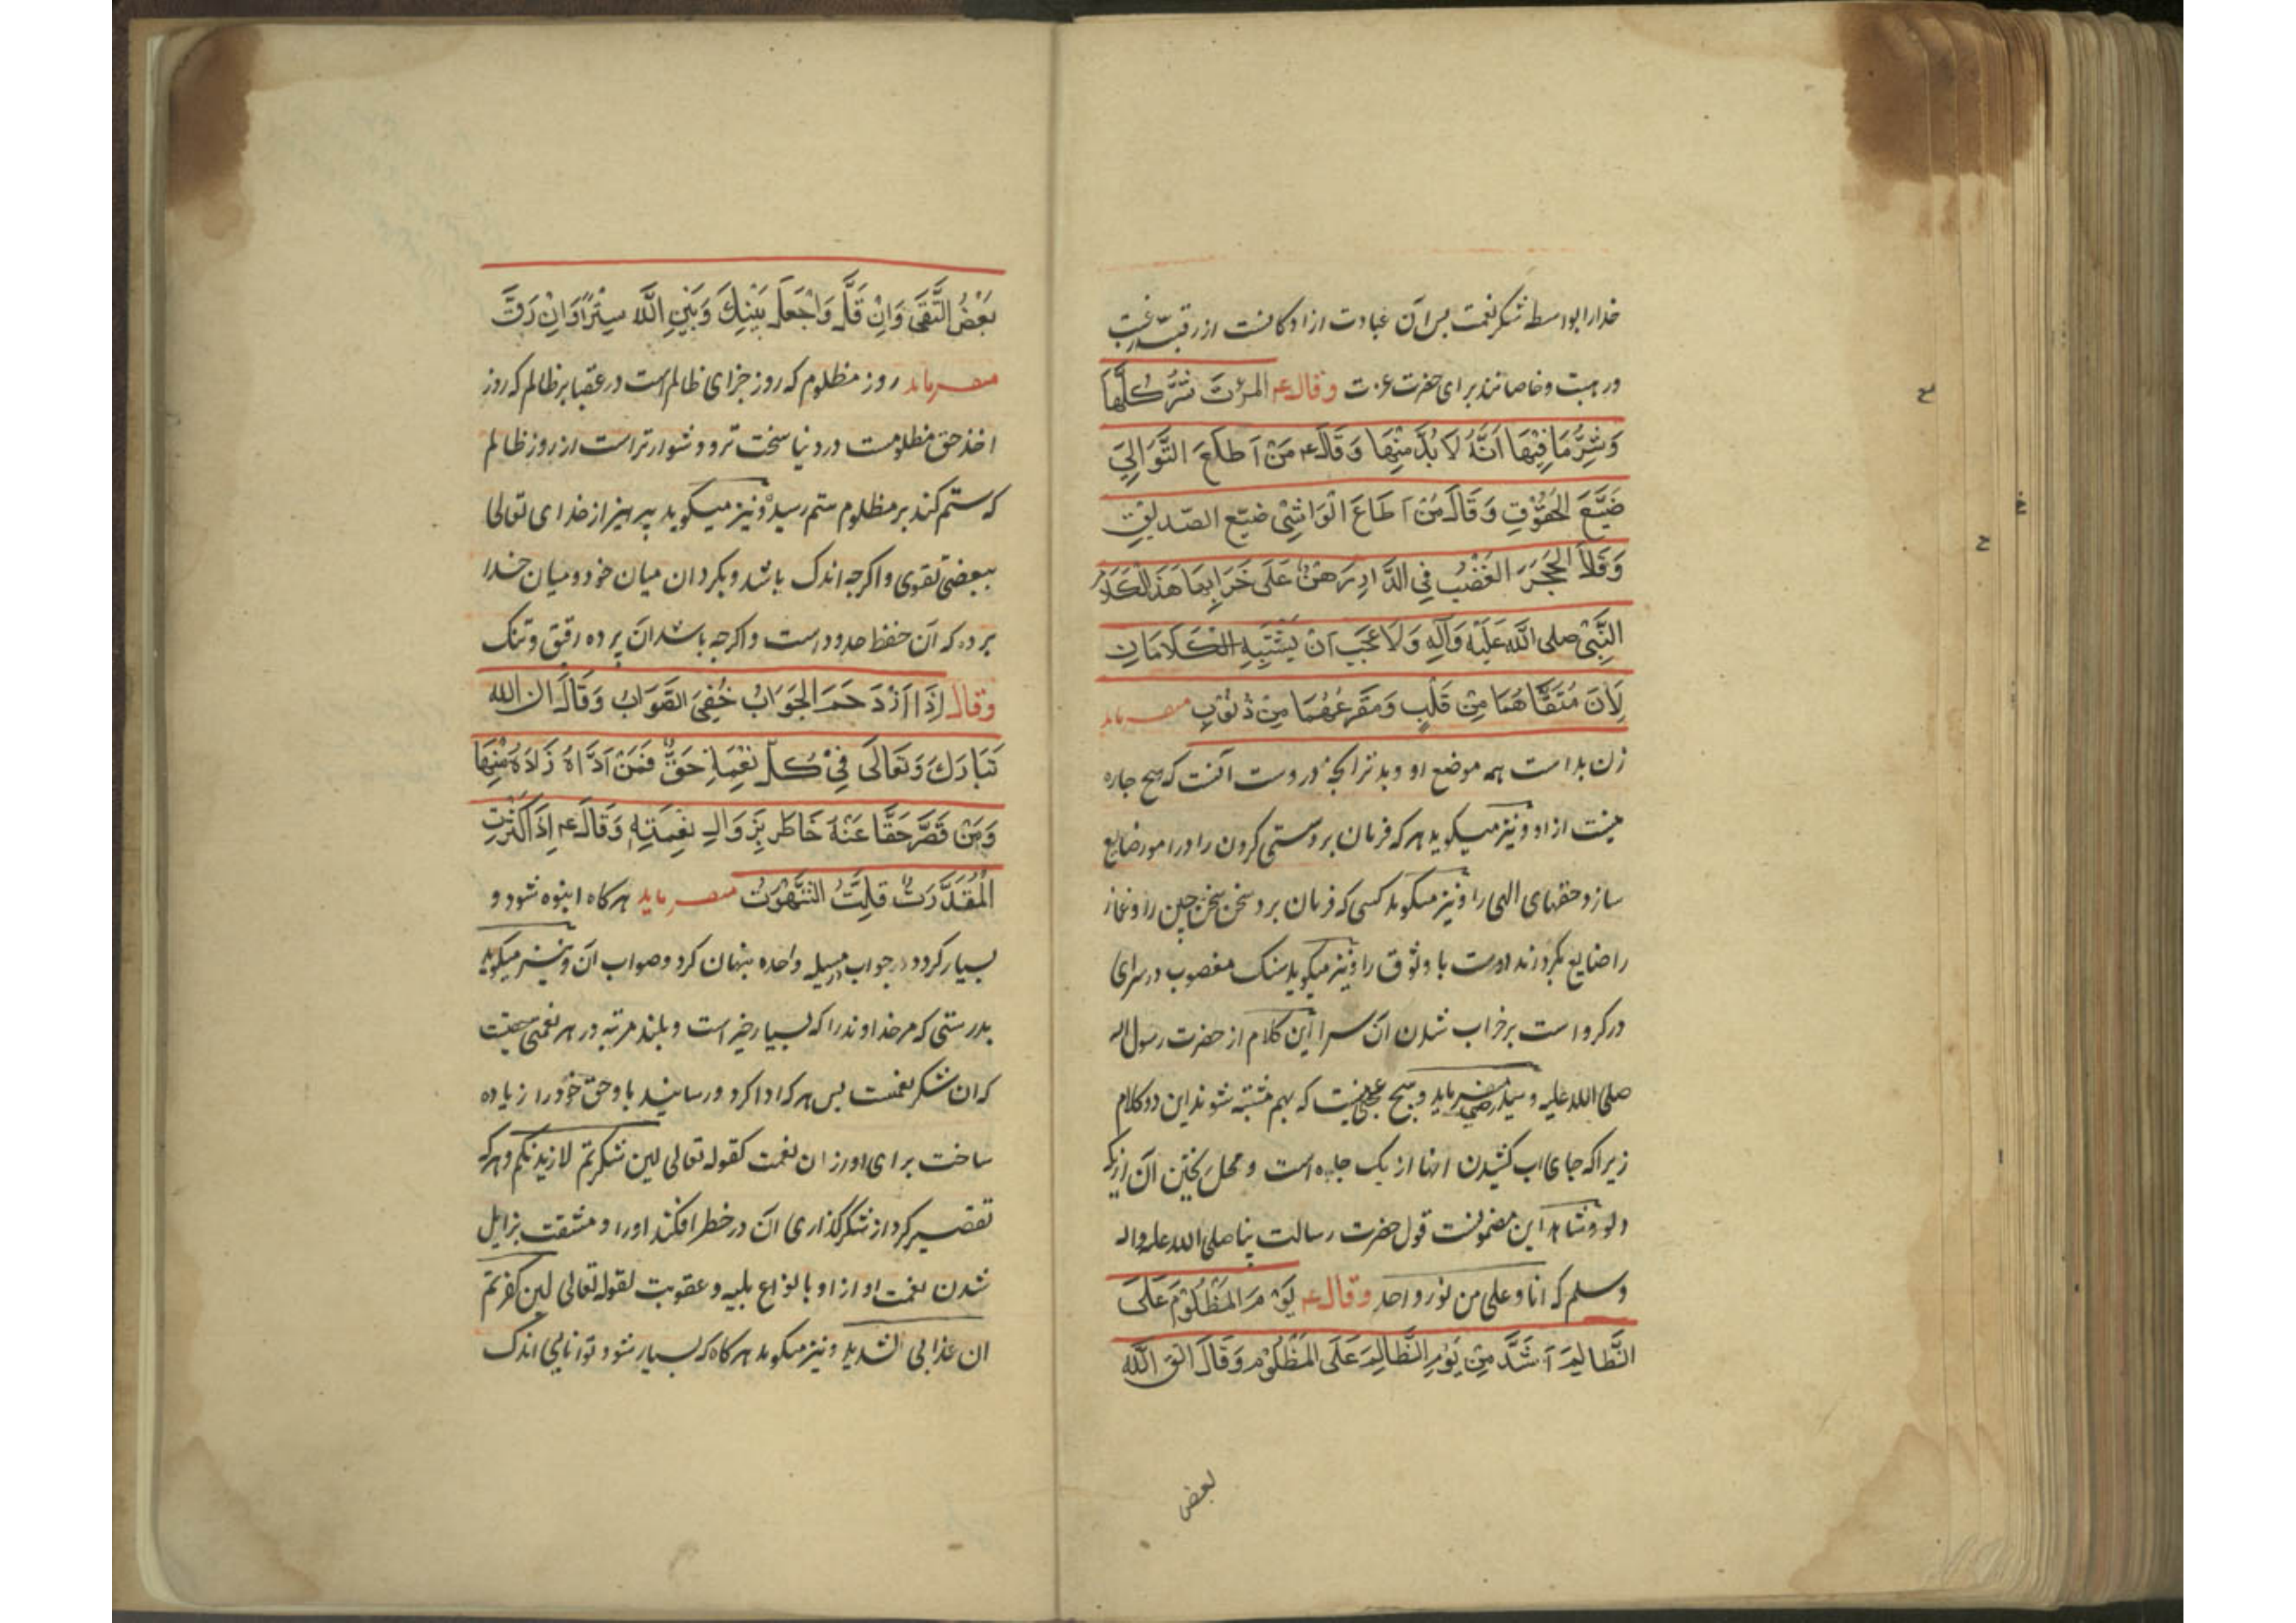 خدا را بواسطه شکر نعمت پس آن عبادت ازادکانست از رقبه رغبت
ورهبت و خاصانند برای حضرت عزت وقال ع المرئة شَرٌّ كُلُّها
وَشَرُّ مَا فِيْهَا اَنَّهُ لَا بُدَّ مِنْهَا وَقَالَ ع مَنْ اَطَاعَ التَّوَانِيَ
ضَيَّعَ الحُقُوْقَ وَقَالَ مَنْ اَطَاعَ الْوَاشِيَ ضَيَّعَ الصّديْقَ
وَقَالَ الحَجَرُ الغَصْبُ فِي الدَّارِ رَهْنٌ عَلَى خَرَابِهَا هَذَا الْكَلَامُ
النَّبِيّ صلى اللَّه عَلَيْهِ وَآلِهِ وَلَا عَجَبَ اَنْ يَشْتَبِهَ الْكَلَامَانِ
لِاَنَّ مُسْتَقَاهُمَا مِنْ قَلْبٍ وَمَفْرَغَهُمَا مِنْ ذَنُوْبٍ میفرماید
زن بد است همه موضع او و بدتر آنچه دروست آنست که هیچ چاره
نیست از او ونیز میکوید هر که فرمان برد سستی کردن را در امور ضایع
سازد حقهای الهی را ونیز میکوید کسی که فرمان برد سخن سخن چین را و غماز
را ضایع کرداند دوست با وثوق را ونیز میکوید سنک مغصوب در سرای
در کرو است بر خراب شدن آن سرا این کلام از حضرت رسول اله
صلی الله علیه و سید رضی میفرماید وهیچ عجبی نیست که بهم مشتبه شوند این دو کلام
زیرا که جای آب کشیدن آنها از یک چاه است و محل ریختن آن از یک
دلو وشاهد این مضمونست قول حضرت رسالت پناه صلی الله علیه واله
وسلم که انا وعلی من نور واحد وقال ع يَوْمُ المَظْلُوْمِ عَلَى
الظَّالِمِ اَشَدُّ مِنْ يَوْمِ الظَّالِمِ عَلَى المَظْلُوْمِ وَقَالَ اتَّقِ اللَّهَ
بعض
بَعْضَ التُّقَى وَاِنْ قَلَّ وَاجْعَلْ بَيْنَكَ وَبَيْنَ اللَّهِ سِتْرًا وَاِنْ رَقَّ
میفرماید روز مظلوم که روز جزای ظالم است در عقبا بر ظالم که روز
اخذ حق مظلومست در دنیا سخت تر و دشوارتر است از روز ظالم
که ستم کند بر مظلوم ستم رسیده ونیز میکوید بپرهیز از خدای تعالی
ببعضی تقوی واکرچه اندک باشد و بکردان میان خود و میان خدا
پرده که آن حفظ حدود است واکرچه باشد آن پرده رقیق و تنک
وقال اِذَا ازْدَحَمَ الجَوَابُ خُفِيَ الصَّوَابُ وَقَالَ ان الله
تَبَارَكَ وَتَعَالَى فِيْ كُلِّ نِعْمَةٍ حَقٌّ فَمَنْ اَدَّاهُ زَادَهُ مِنْهَا
وَمَنْ قَصَّرَ حَقًّا عَنْهُ خَاطَرَ بِزَوَالِ نِعْمَتِهِ وَقَالَ ع اِذَا كَثُرَتِ
الْمَقْدَرَتُ قَلَّتِ الشَّهْوَتُ میفرماید هر کاه انبوه شود و
بسیار کردد در جواب مسیله واحده پنهان کردد صواب آن ونیز میکوید
بدرستی که مر خداوند را که بسیار خیر است و بلند مرتبه در هر نعمتی حقیست
که آن شکر نعمتست پس هر که ادا کرد و رسانید باو حق خود را زیاده
ساخت برای او از آن نعمت کقوله تعالی لین شکرتم لازیدنکم وهر که
تقصیر کرد از شکر کذاری آن در خطر افکند او را و مشقت بزایل
شدن نعمت او از او بانواع بلیه و عقوبت لقوله تعالی لین کفرتم
ان عذابی لشدید ونیز میکوید هر کاه که بسیار شود توانایی اندک